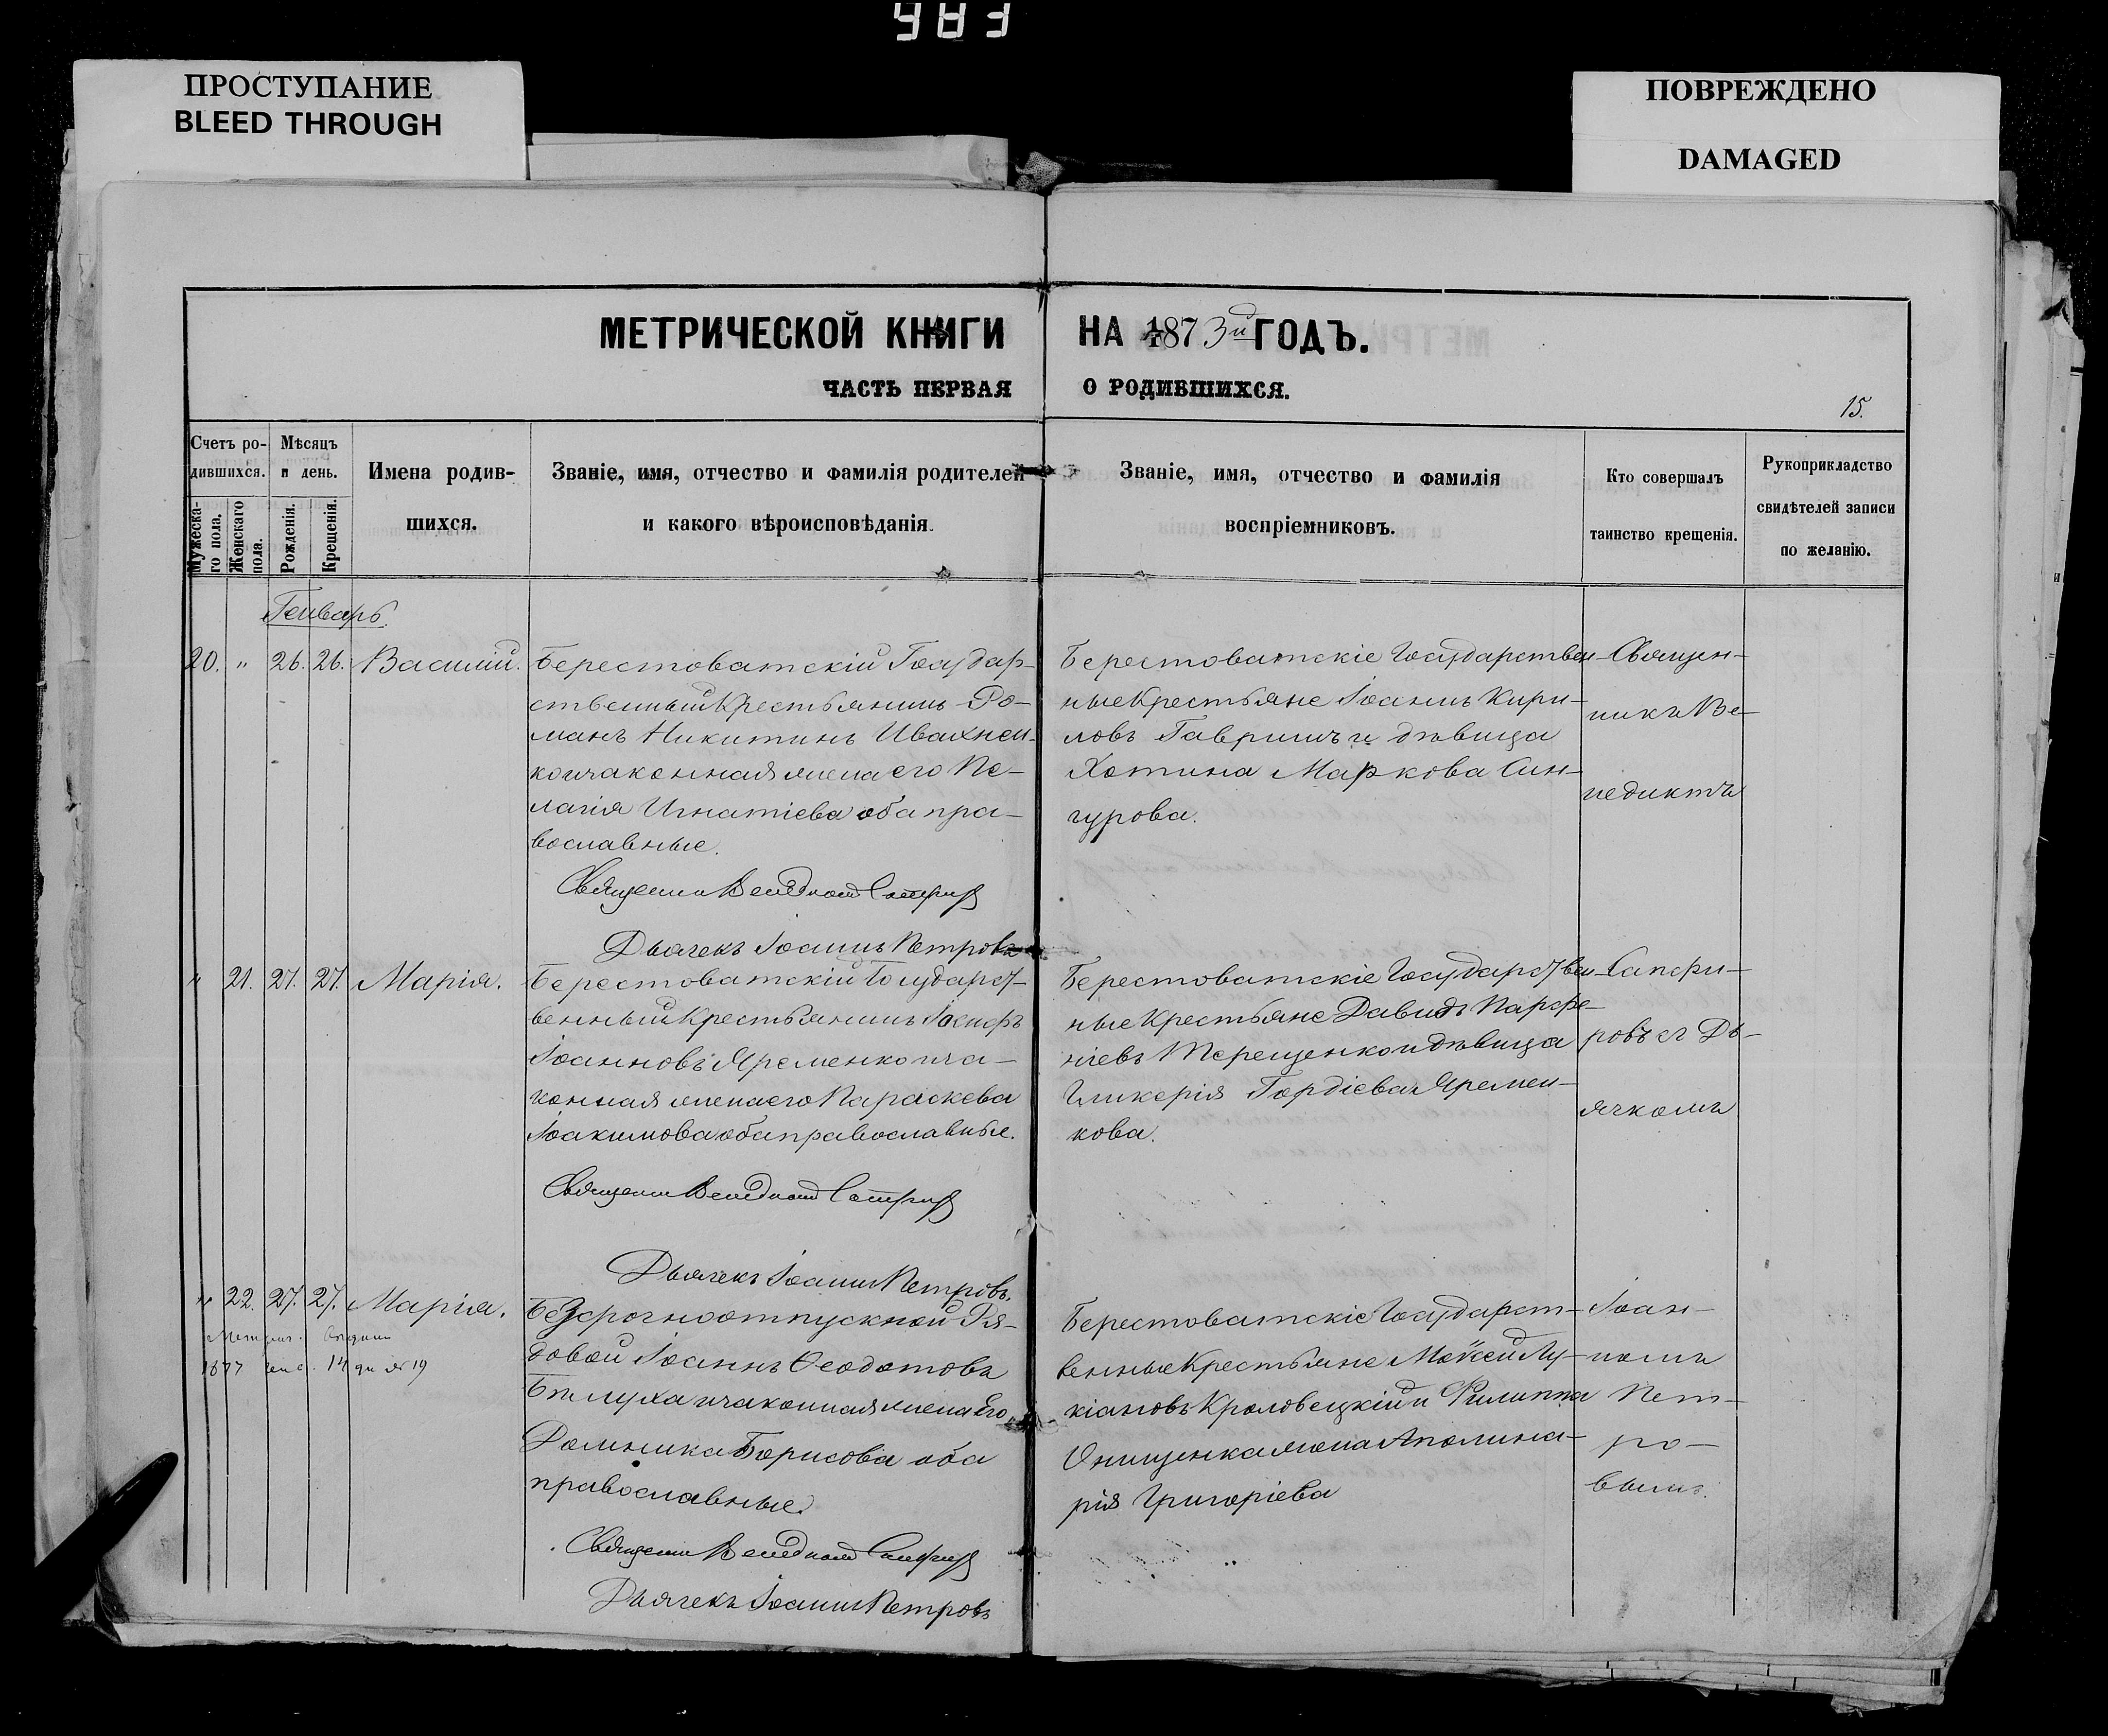 983
ПРОСТУПАНИЕ
BLEED THROUGH
ПОВРЕЖДЕНО
DAMAGED
МЕТРИЧЕСКОЙ КНИГИ НА 1873й ГОДЪ.
ЧАСТЬ ПЕРВАЯ О РОДИВШИХСЯ.
15.
Счетъ ро-
дившихся.
Мужеска-
го пола.
Женскаго
пола.
Мѣсяцъ
и день.
Рожденія.
Крещенія.
Имена родив-
шихся.
Званіе, имя, отчество и фамилія родителей
и какого вѣроисповѣданія.
Званіе, имя, отчество и фамилія
воспріемниковъ.
Кто совершалъ
таинство крещенія.
Рукоприкладство
свидѣтелей записи
по желанію.
Генварь.
20. " 26. 26. Василій.
Берестоватскій Государ-
ственный Крестьянинъ Ро-
манъ Никитинъ Ивахнен-
ко и законная жена его Пе-
лагія Игнатіева оба пра-
вославные.
Священни Венедиктъ
Дьячекъ Іоаннъ Петровъ
Берестоватскіе Государствен-
ные Крестьяне Іоаннъ Кири-
ловъ Гавришъ и дѣвица
Хотина Маркова Син-
гурова.
Священ-
никъ Ве-
недиктъ
" 21. 27. 27. Марія.
Берестоватскій Государст-
венный Крестьянинъ Іосифъ
Іоанновъ Яременко и за-
конная жена его Параскева
Іоакимова оба православные.
Священни Венедиктъ
Дьячекъ Іоаннъ Петровъ.
Берестоватскіе Государствен-
ные Крестьяне Давидъ Парфе-
ніевъ Терещенко и дѣвица
Гликерія Гордіева Яремен-
кова.
Сапфи-
ровъ съ Дь-
ячкомъ
" 22. 27. 27. Марія.
1877 14 дн № 19
Безсрочноотпускной Ря-
довой Іоаннъ Ѳеодотовъ
Бѣлуха и законная жена Его
Домника Борисова оба
православные.
Священни Венедиктъ
Дьячекъ Іоаннъ Петровъ
Берестоватскіе Государст-
венные Крестьяне Моѵсей Лу-
кіановъ Кроловецкій и Филиппа
Онищенка жена Аполина-
рія Григоріева
Іоан-
номъ
Пет-
ро-
вымъ.